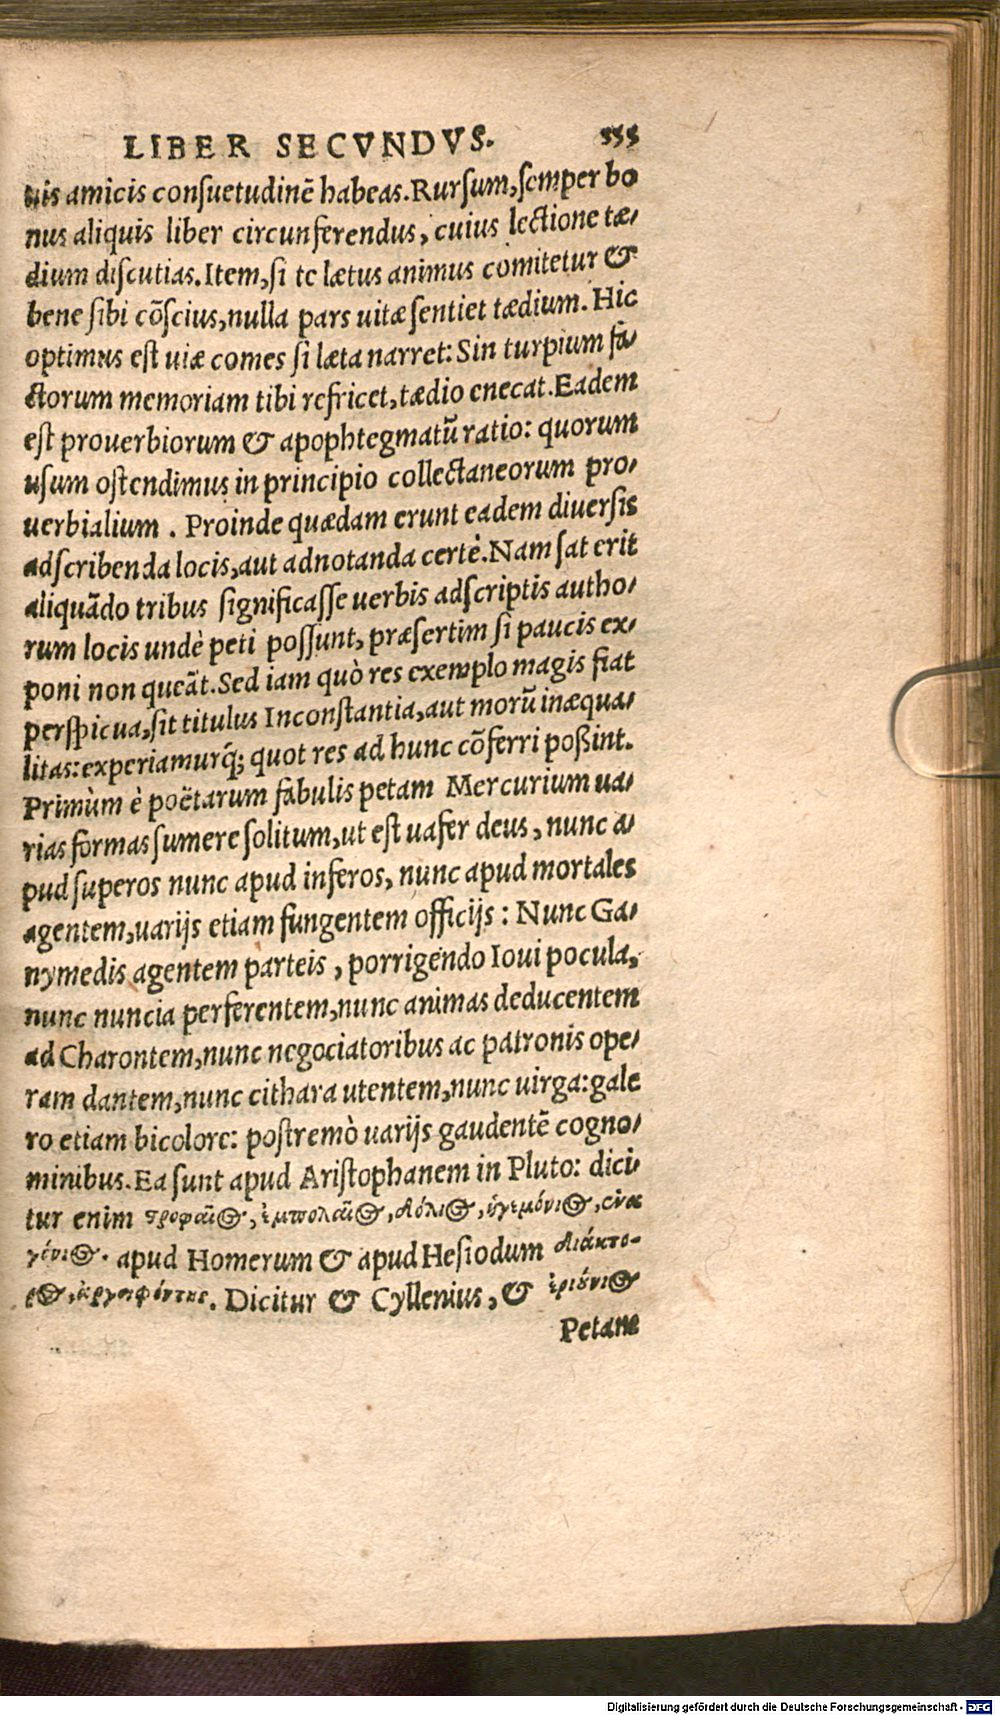 LIBER SECVNDVS. 355
uis amicis consuetudinẽ habeas. Rursum, semper bo
nus aliquis liber circunferendus, cuius lectione tæ/
dium discutias. Item, si te lætus animus comitetur &
bene sibi cõscius, nulla pars uitæ sentiet tædium. Hic
optimus est uiæ comes si læta narret: Sin turpium fa/
ctorum memoriam tibi refricet, tædio enecat. Eadem
est prouerbiorum & apophtegmatũ ratio: quorum
usum ostendimus in principio collectaneorum pro/
uerbialium. Proinde quædam erunt eadem diuersis
adscribenda locis, aut adnotanda certè. Nam sat erit
aliquãdo tribus significasse uerbis adscriptis autho/
rum locis undè peti possunt, præsertim si paucis ex/
poni non queãt. Sed iam quò res exemplo magis fiat
perspicua, sit titulus Inconstantia, aut morũ inæqua/
litas: experiamurq́; quot res ad hunc cõferri poßint.
Primùm è poëtarum fabulis petam Mercurium ua/
rias formas sumere solitum, ut est uafer deus, nunc a/
pud superos nunc apud inferos, nunc apud mortales
agentem, uarijs etiam fungentem officijs: Nunc Ga/
nymedis agentem parteis, porrigendo Ioui pocula,
nunc nuncia perferentem, nunc animas deducentem
ad Charontem, nunc negociatoribus ac patronis ope/
ram dantem, nunc cithara utentem, nunc uirga: gale
ro etiam bicolore: postremò uarijs gaudentẽ cogno/
minibus. Ea sunt apud Aristophanem in Pluto: dici/
tur enim στροφαῖος, ἐμπολαῖος, δόλιος, ἡγεμόνιος, ἐνα
γώνιος. apud Homerum & apud Hesiodum διάκτο-
ρος, ἀργειφόντης. Dicitur & Cyllenius, & ἐριούνιος
Petam